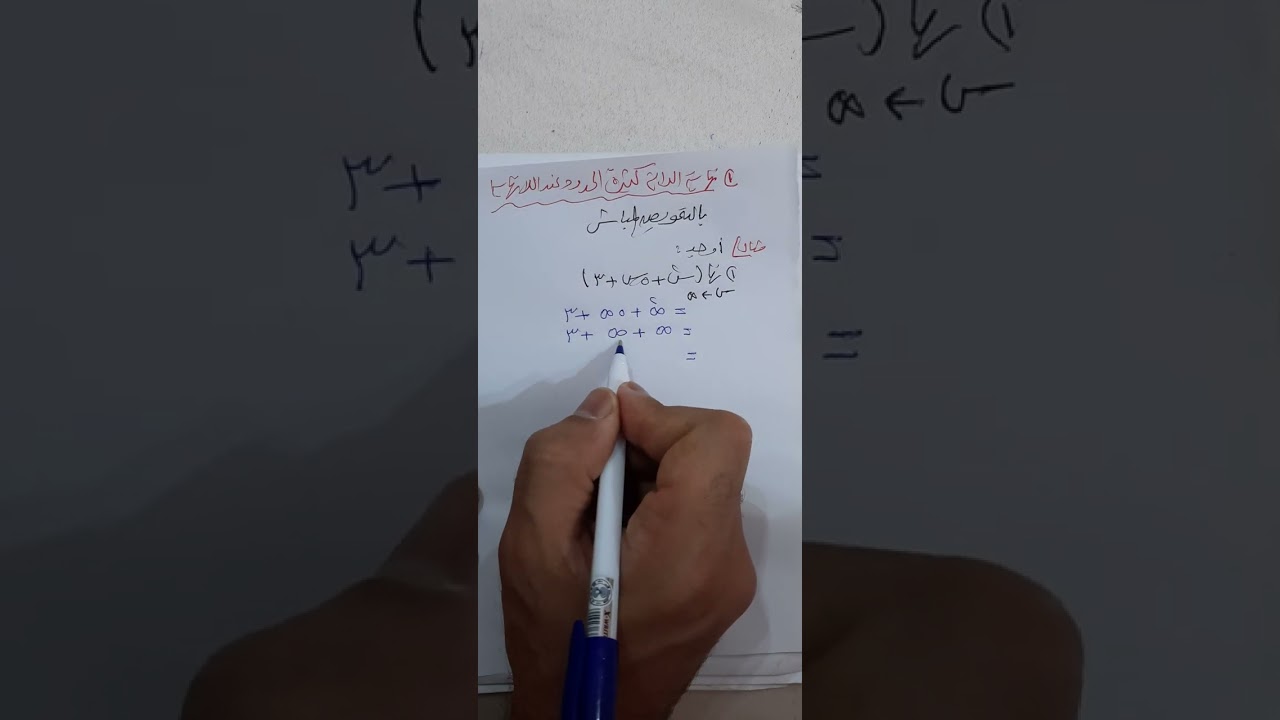 ① نهاية الدالة كثيرة الحدود عند اللانهاية
بالتعويض المباشر
مثال/ أوجد:
① نها (س² + ٥س + ٣)
س ← ∞
= ∞² + ٥∞ + ٣
= ∞ + ∞ + ٣
=